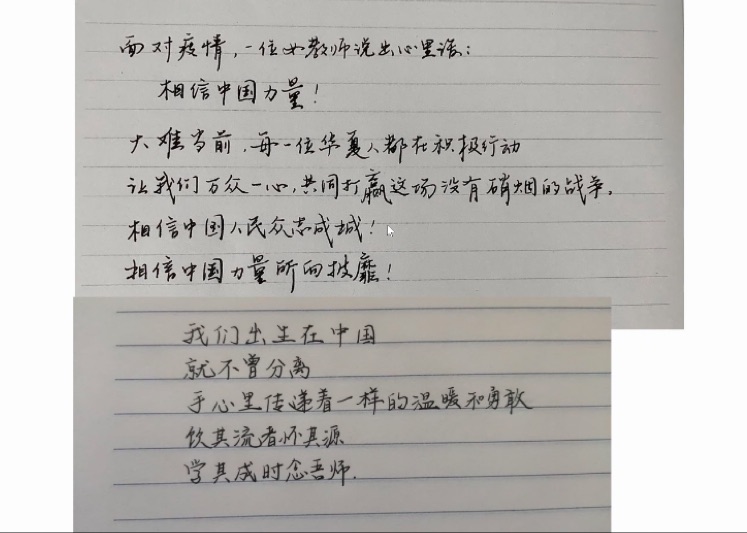 面对疫情，一位女教师说出心里话：
相信中国力量！
大难当前，每一位华夏人都在积极行动
让我们万众一心，共同打赢这场没有硝烟的战争。
相信中国人民众志成城！
相信中国力量所向披靡！
我们出生在中国
就不曾分离
于心里传递着一样的温暖和勇敢
饮其流者怀其源
学其成时念吾师.